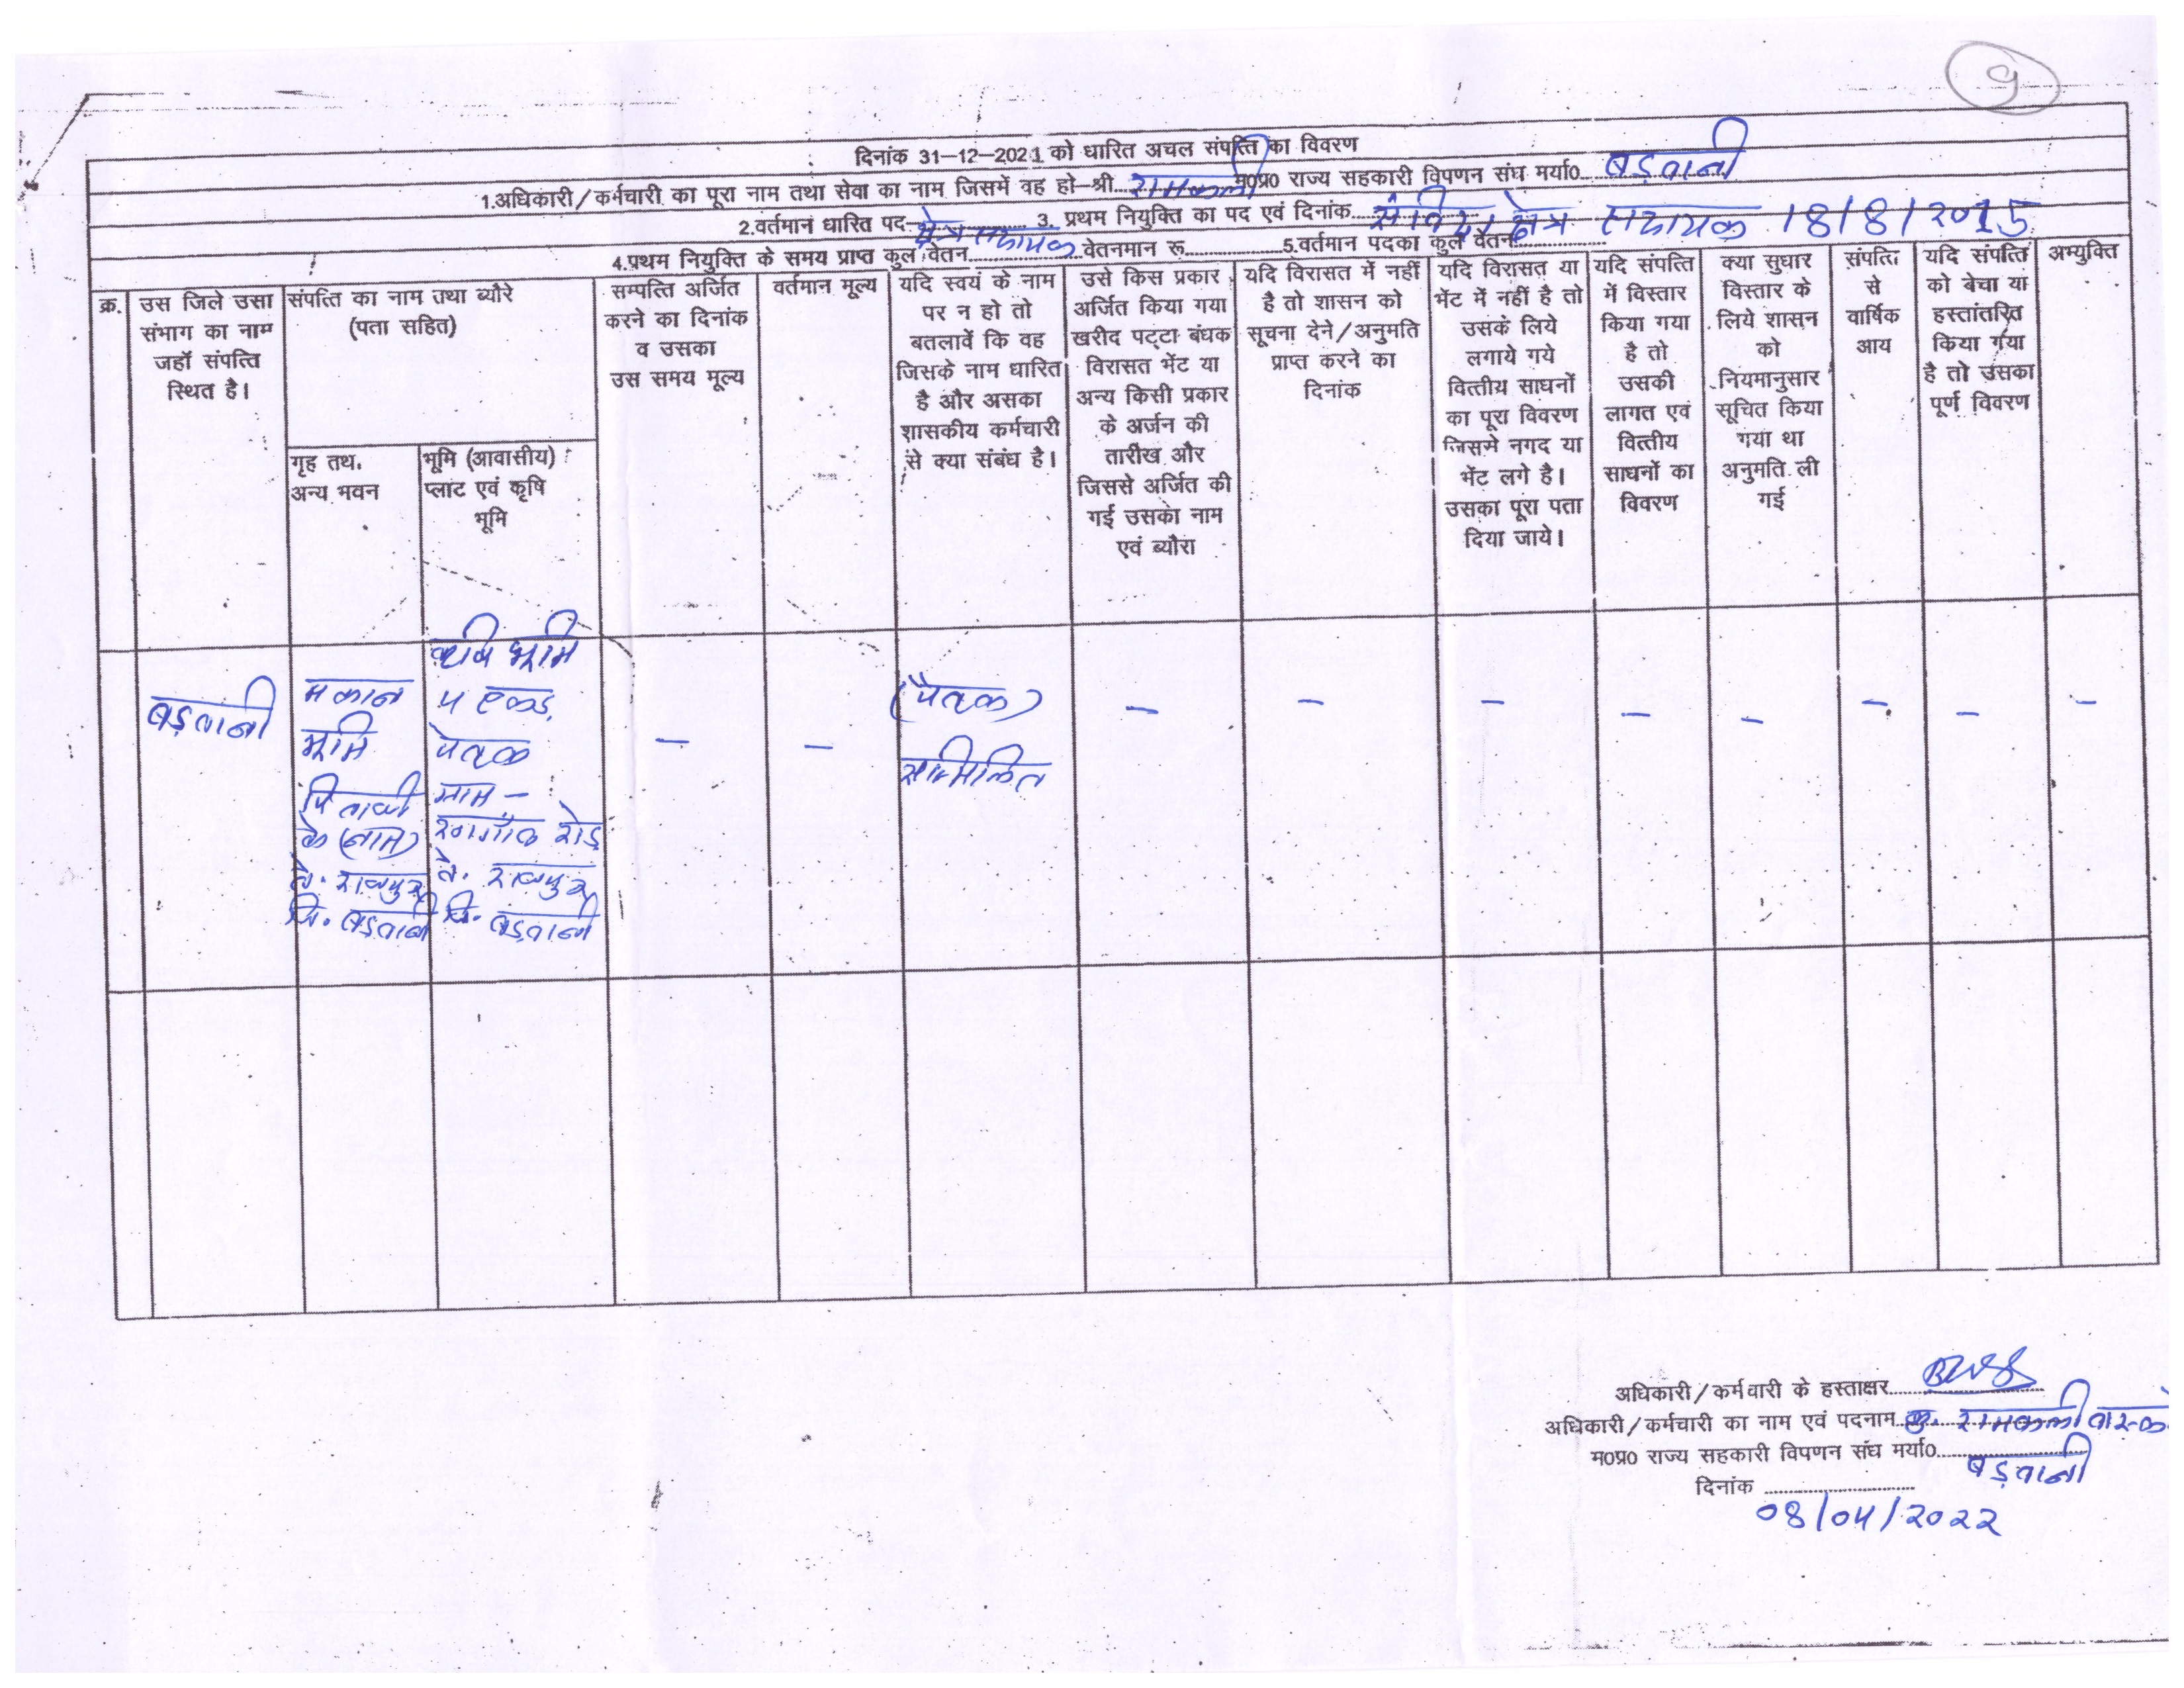 9
दिनांक 31-12-2021 को धारित अचल संपत्ति का विवरण
1.अधिकारी/कर्मचारी का पूरा नाम तथा सेवा का नाम जिसमें वह हो-श्री रामकली म0प्र0 राज्य सहकारी विपणन संघ मर्या0 बड़वानी
2.वर्तमान धारित पद- क्षेत्र सहायक 3. प्रथम नियुक्ति का पद एवं दिनांक संविदा क्षेत्र सहायक 18/8/2015
4.प्रथम नियुक्ति के समय प्राप्त कुल वेतन वेतनमान रू. 5.वर्तमान पदका कुल वेतन
क्र.
उस जिले उसा
संभाग का नाम
जहॉ संपत्ति
स्थित है।
संपत्ति का नाम तथा ब्यौरे
(पता सहित)
गृह तथ.
अन्य भवन
भूमि (आवासीय)
प्लाट एवं कृषि
भूमि
सम्पत्ति अर्जित
करने का दिनांक
व उसका
उस समय मूल्य
वर्तमान मूल्य
यदि स्वयं के नाम
पर न हो तो
बतलावें कि वह
जिसके नाम धारित
है और असका
शासकीय कर्मचारी
से क्या संबंध है।
उसे किस प्रकार
अर्जित किया गया
खरीद पट्टा बंधक
विरासत भेंट या
अन्य किसी प्रकार
के अर्जन की
तारीख और
जिससे अर्जित की
गई उसका नाम
एवं ब्यौरा
यदि विरासत में नहीं
है तो शासन को
सूचना देने/अनुमति
प्राप्त करने का
दिनांक
यदि विरासत या
भेंट में नहीं है तो
उसके लिये
लगाये गये
वित्तीय साधनों
का पूरा विवरण
जिसमे नगद या
भेंट लगे है।
उसका पूरा पता
दिया जाये।
यदि संपत्ति
में विस्तार
किया गया
है तो
उसकी
लागत एवं
वित्तीय
साधनों का
विवरण
क्या सुधार
विस्तार के
लिये शासन
को
नियमानुसार
सूचित किया
गया था
अनुमति ली
गई
संपत्ति
से
वार्षिक
आय
यदि संपत्ति
को बेचा या
हस्तांतरित
किया गया
है तो उसका
पूर्ण विवरण
अभ्युक्ति
बड़वानी
मकान
भूमि
पिताजी
के (नाम)
ते. राजपुर
जि. बड़वानी
कृषि भूमि
५ एकड़
पैतृक
ग्राम -
रोड़
ते. राजपुर
जि. बड़वानी
-
-
(पैतृक)
सम्मिलित
-
-
-
-
-
-
-
-
अधिकारी/कर्मचारी के हस्ताक्षर
अधिकारी/कर्मचारी का नाम एवं पदनाम कु. रामकली
म0प्र0 राज्य सहकारी विपणन संघ मर्या0 बड़वानी
दिनांक
08/04/2022